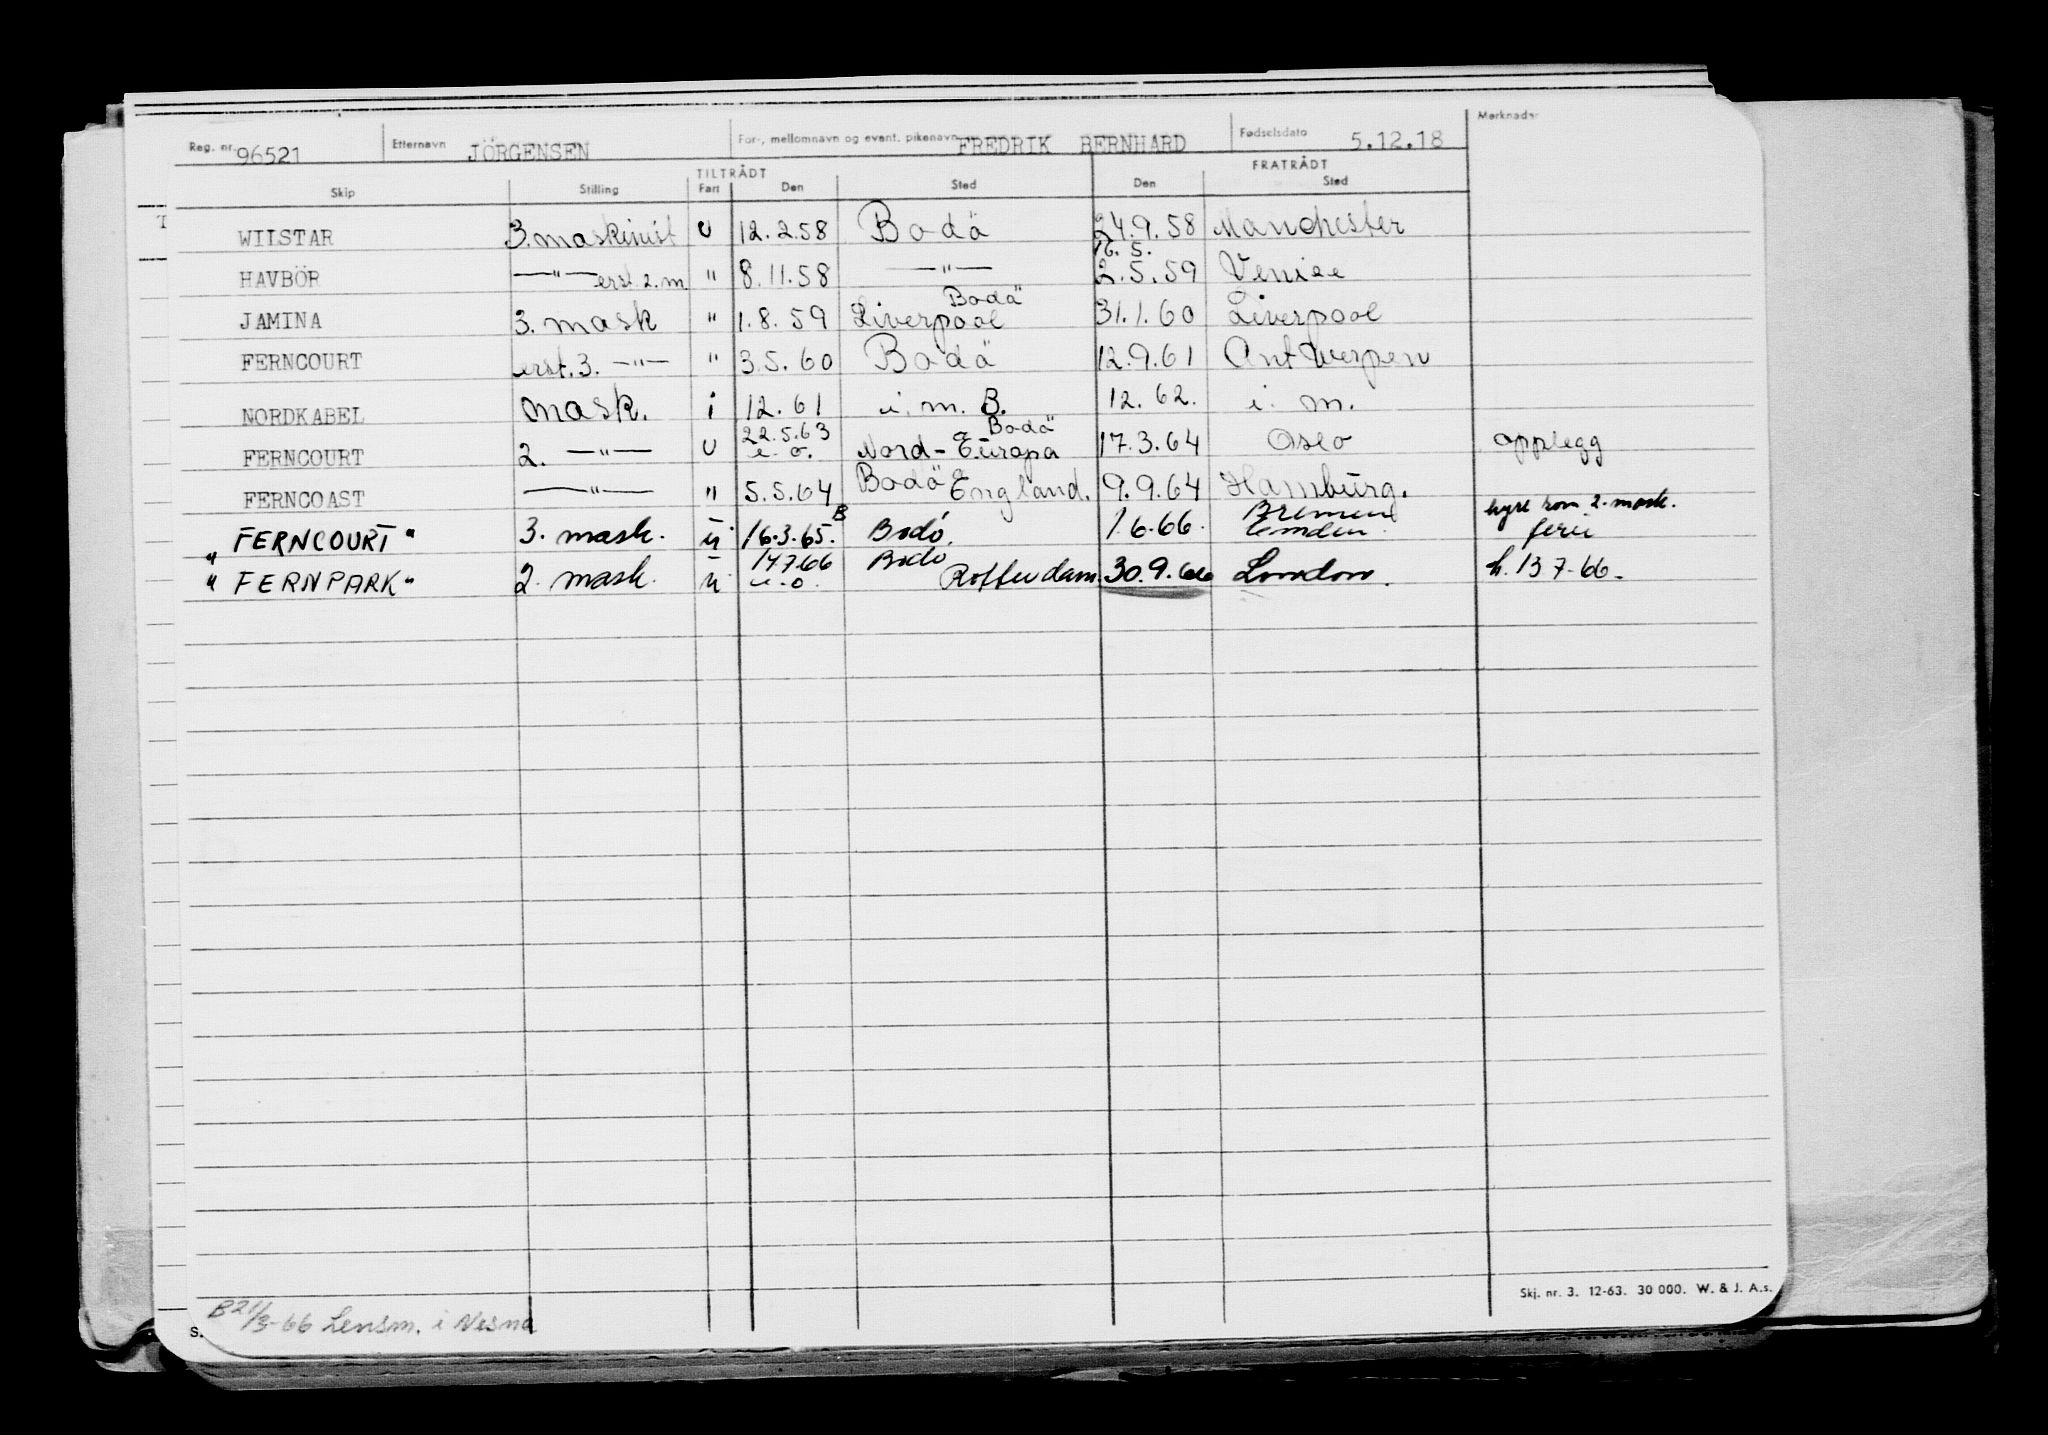 Reg. nr. 96521 Etternavn JÖRGENSEN For-, mellomnavn og event. pikenavn FREDRIK BERNHARD Fødselsdato 5.12.18 Merknader
TILTRÅDT FRATRÅDT
Skip Stilling Fart Den Sted Den Sted
WIISTAR 3. maskinist U 12.2.58 Bodö 24.9.58 Manchester
16. 5.
HAVBÖR —"— erst. 2. m. " 8.11.58 —"— 2.5.59 Venise
Bodö
JAMINA 3. mask " 1.8.59 Liverpool 31.1.60 Liverpool
FERNCOURT erst. 3. —"— " 3.5.60 Bodö 12.9.61 Antwerpen
NORDKABEL mask. i 12.61 i. m. B. 12.62. i. m.
22.5.63 Bodö
FERNCOURT 2. —"— U e. o. Nord-Europa 17.3.64 Oslo opplegg
FERNCOAST —"— " 5.5.64 Bodö England. 9.9.64 Hamburg.
B Bremen hyrt som 2. mask.
"FERNCOURT" 3. mask. u 16.3.65. Bodö. 1.6.66. Emden. ferie
14.7.66 Bodö
"FERNPARK" 2. mask. u e. o. Rotterdam 30.9.66 London. h. 13 7-66.
Skj. nr. 3. 12-63. 30 000. W. & J. A.s.
B 21/3-66 Lensm. i Nesna
S.